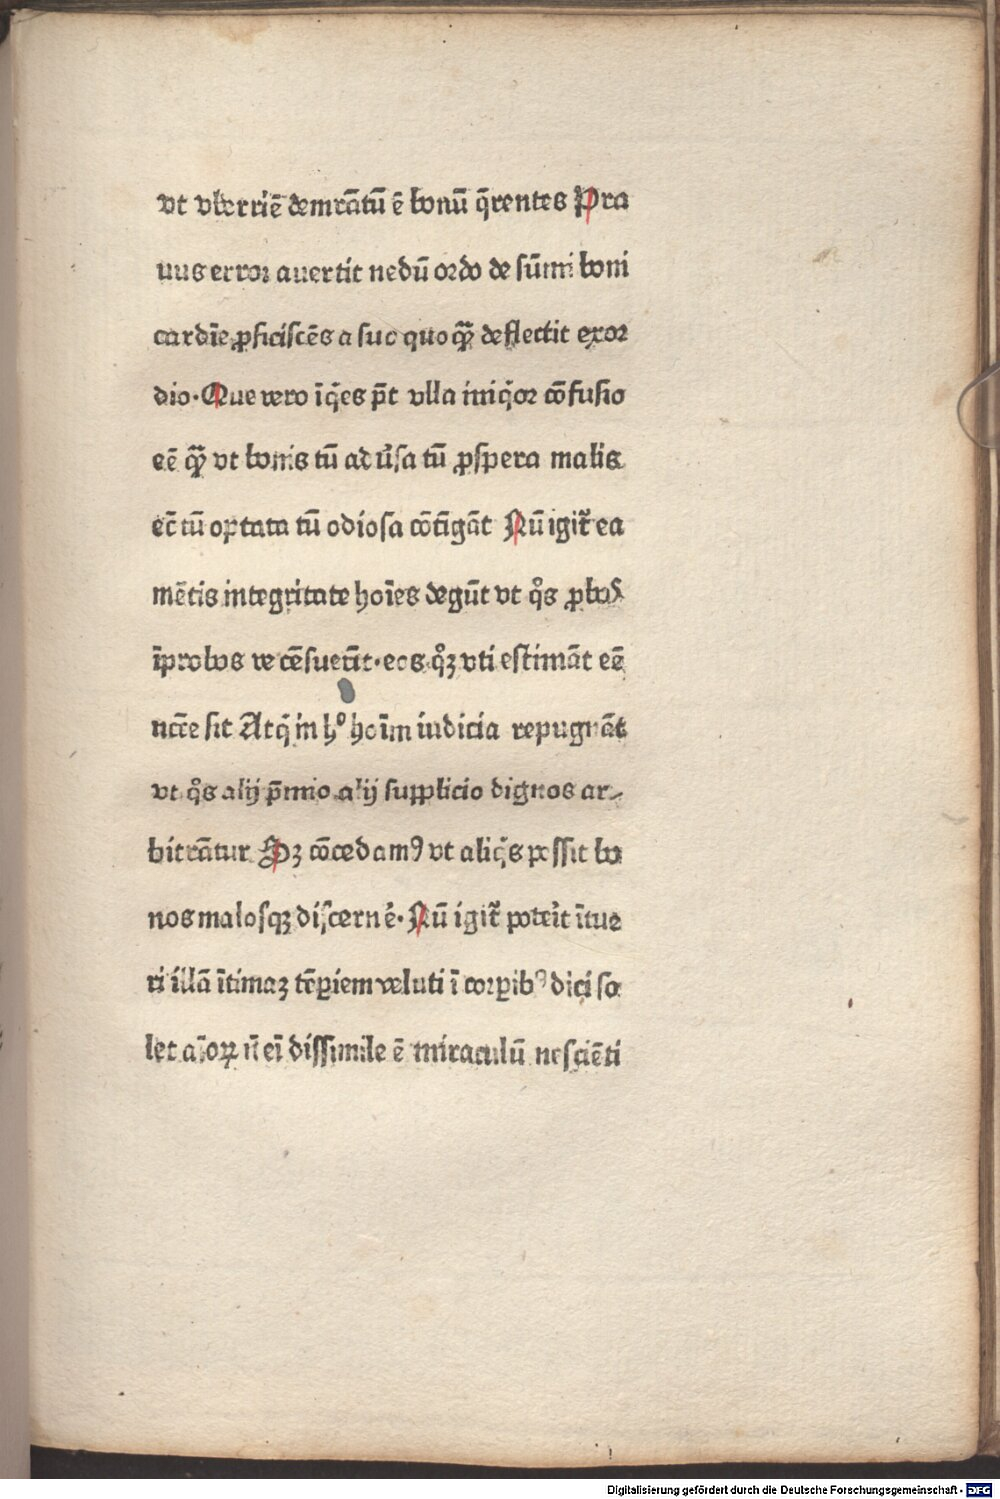 vt vberriē demrātū ē bonū q̄rentes Pra
uus error auertit nedū ordo de sūmi boni
cardīe ꝓficiscēs a suo quoqꝫ deflectit exor
dio. Que vero īq̄es pt̄ vlla iniq̇or cōfusio
eē qꝫ vt bonis tū adu̓sa tū ꝓspera malis
ec̄ tū optata tū odiosa cōtīgāt Nū igit̄ ea
mētis integritate hoīes degūt vt q̊s ꝓbos
īprobos ve cēsuerūt. eos q̊ꝫ vti estimāt eē
ncc̄e sit Atq̄ in hº hoīm iudicia repugnāt
vt q̊s alij p̄mio alij supplicio dignos ar
bitrātur Sꝫ cōcedamꝰ vt aliq̇s possit bo
nos malosqꝫ discernē. Nū igit̄ poterit ītue
ri illā ītimaꝫ tēꝑiem veluti ī corꝑibꝰ dici so
let aīoꝝ n̄ eī dissimile ē miraculū nesciēti
Digitalisierung gefördert durch die Deutsche Forschungsgemeinschaft - DFG